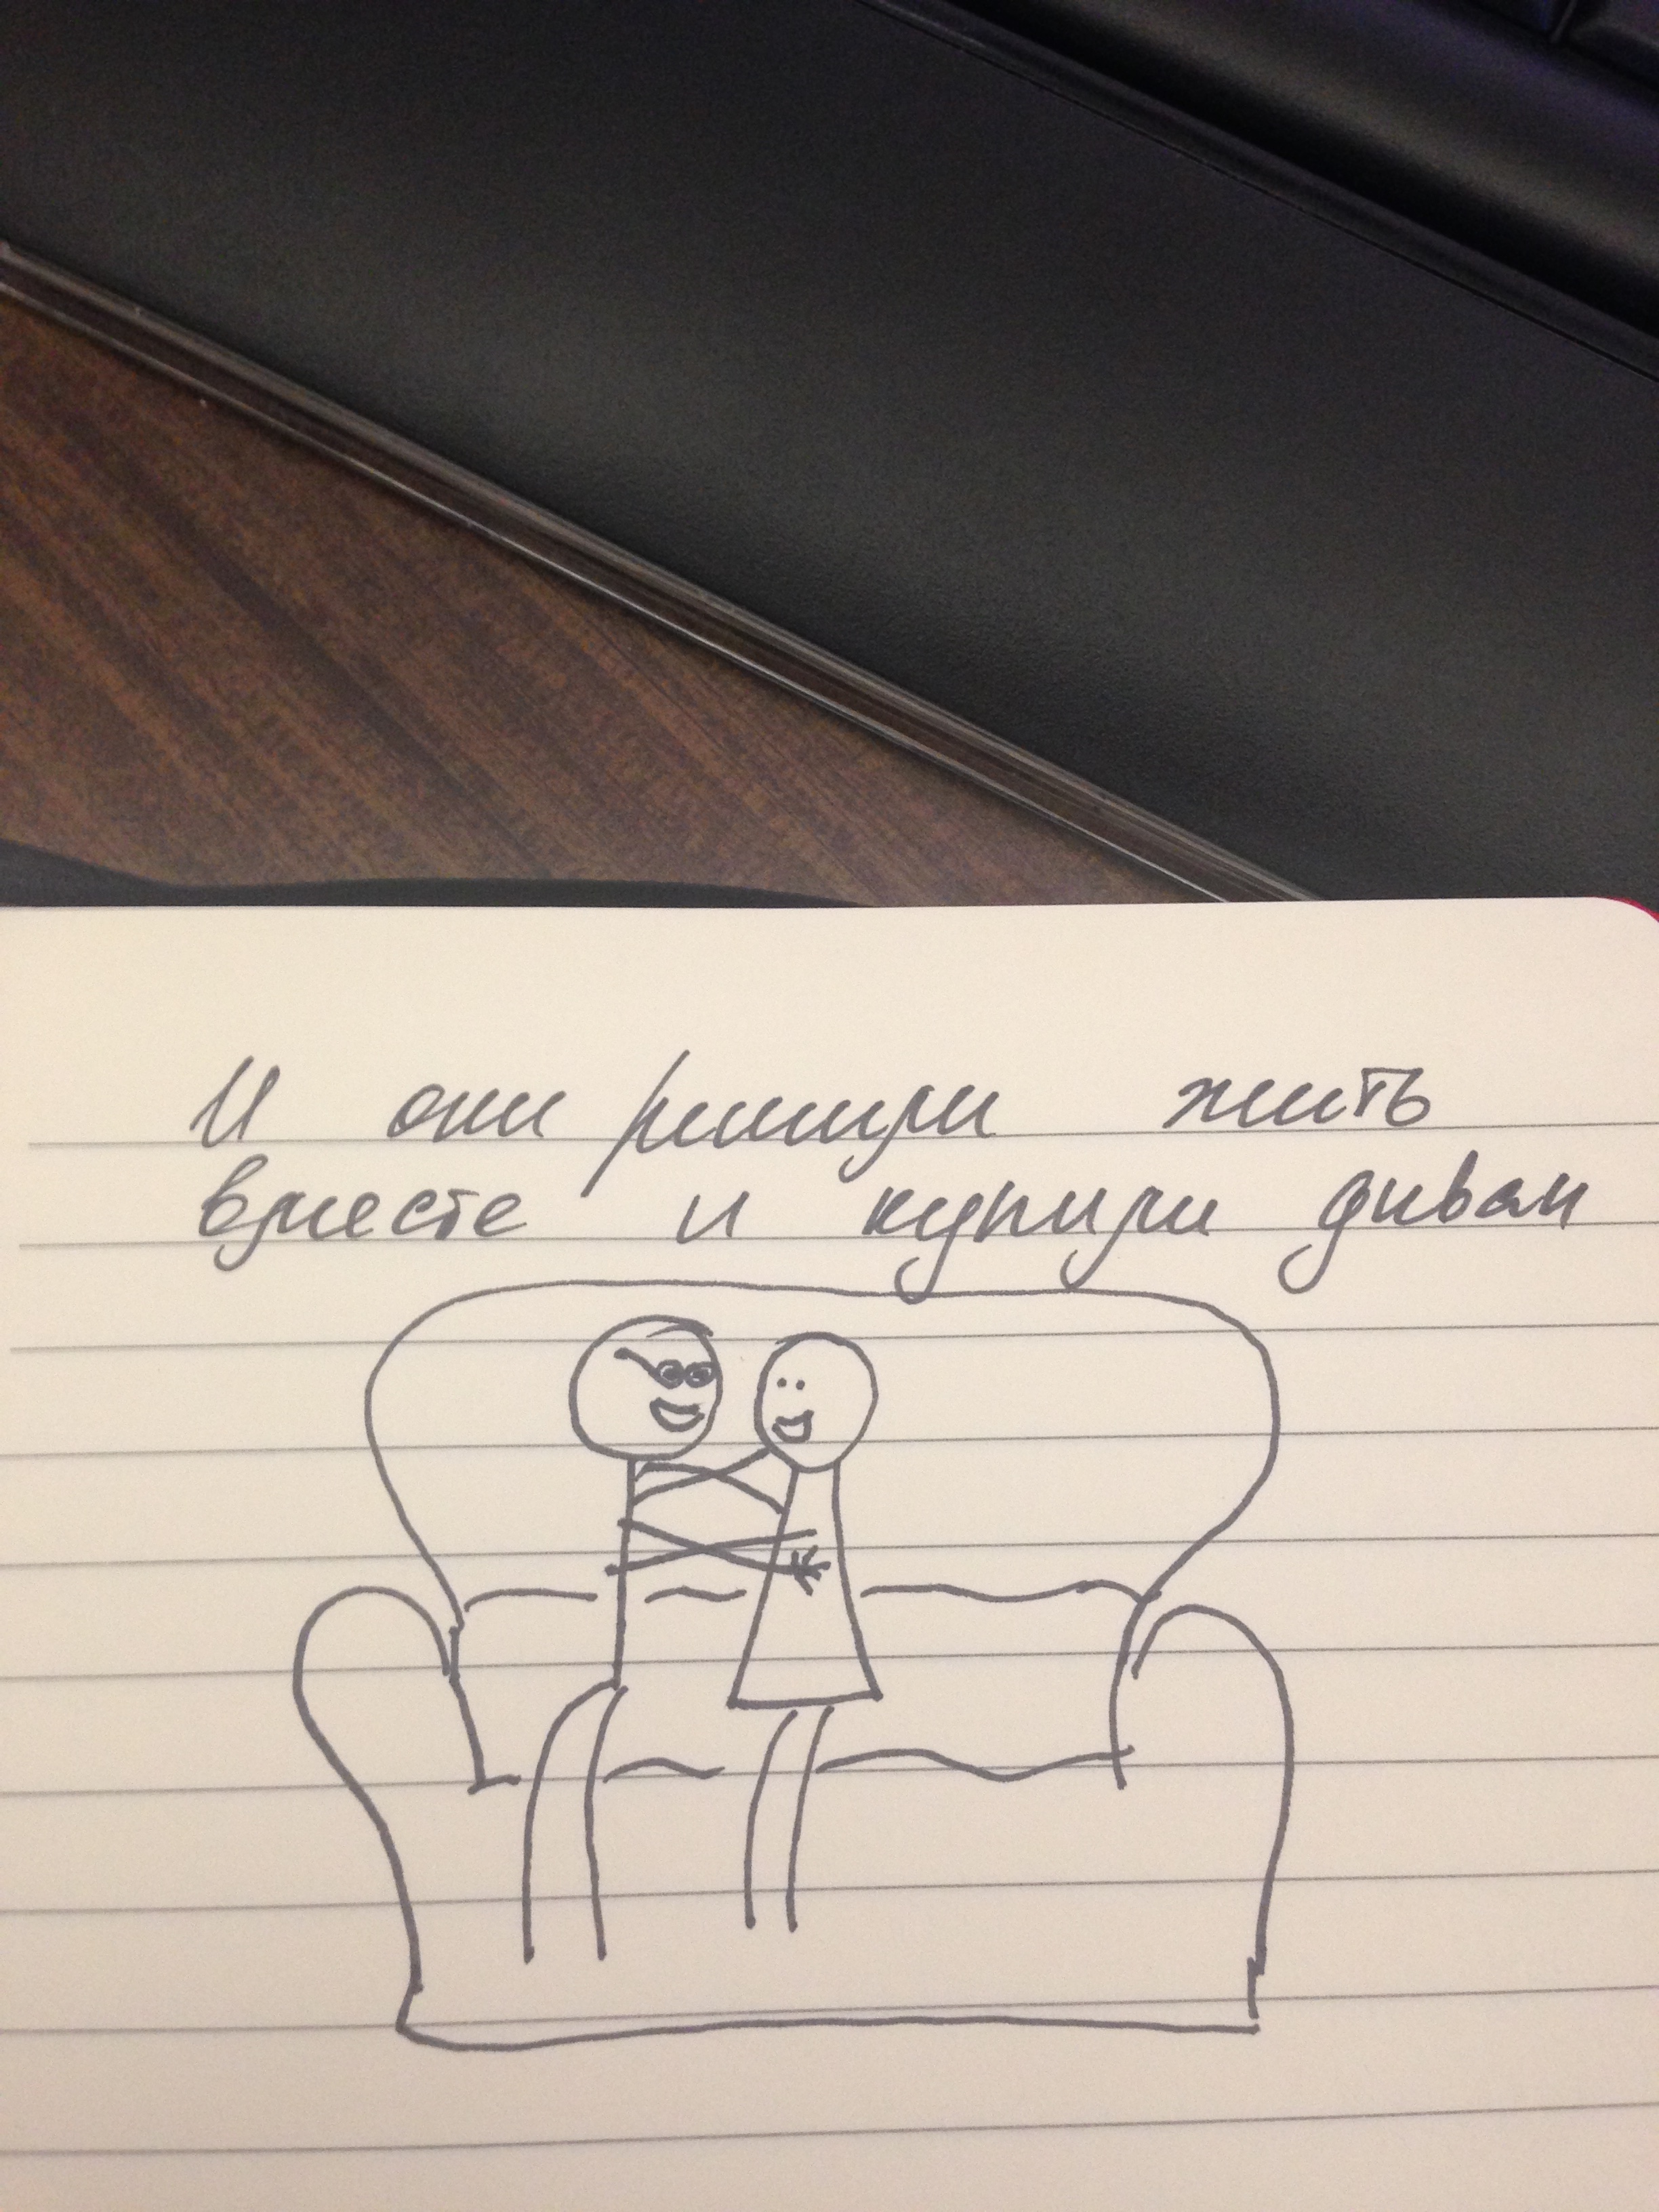 И они решили жить
вместе и купили диван